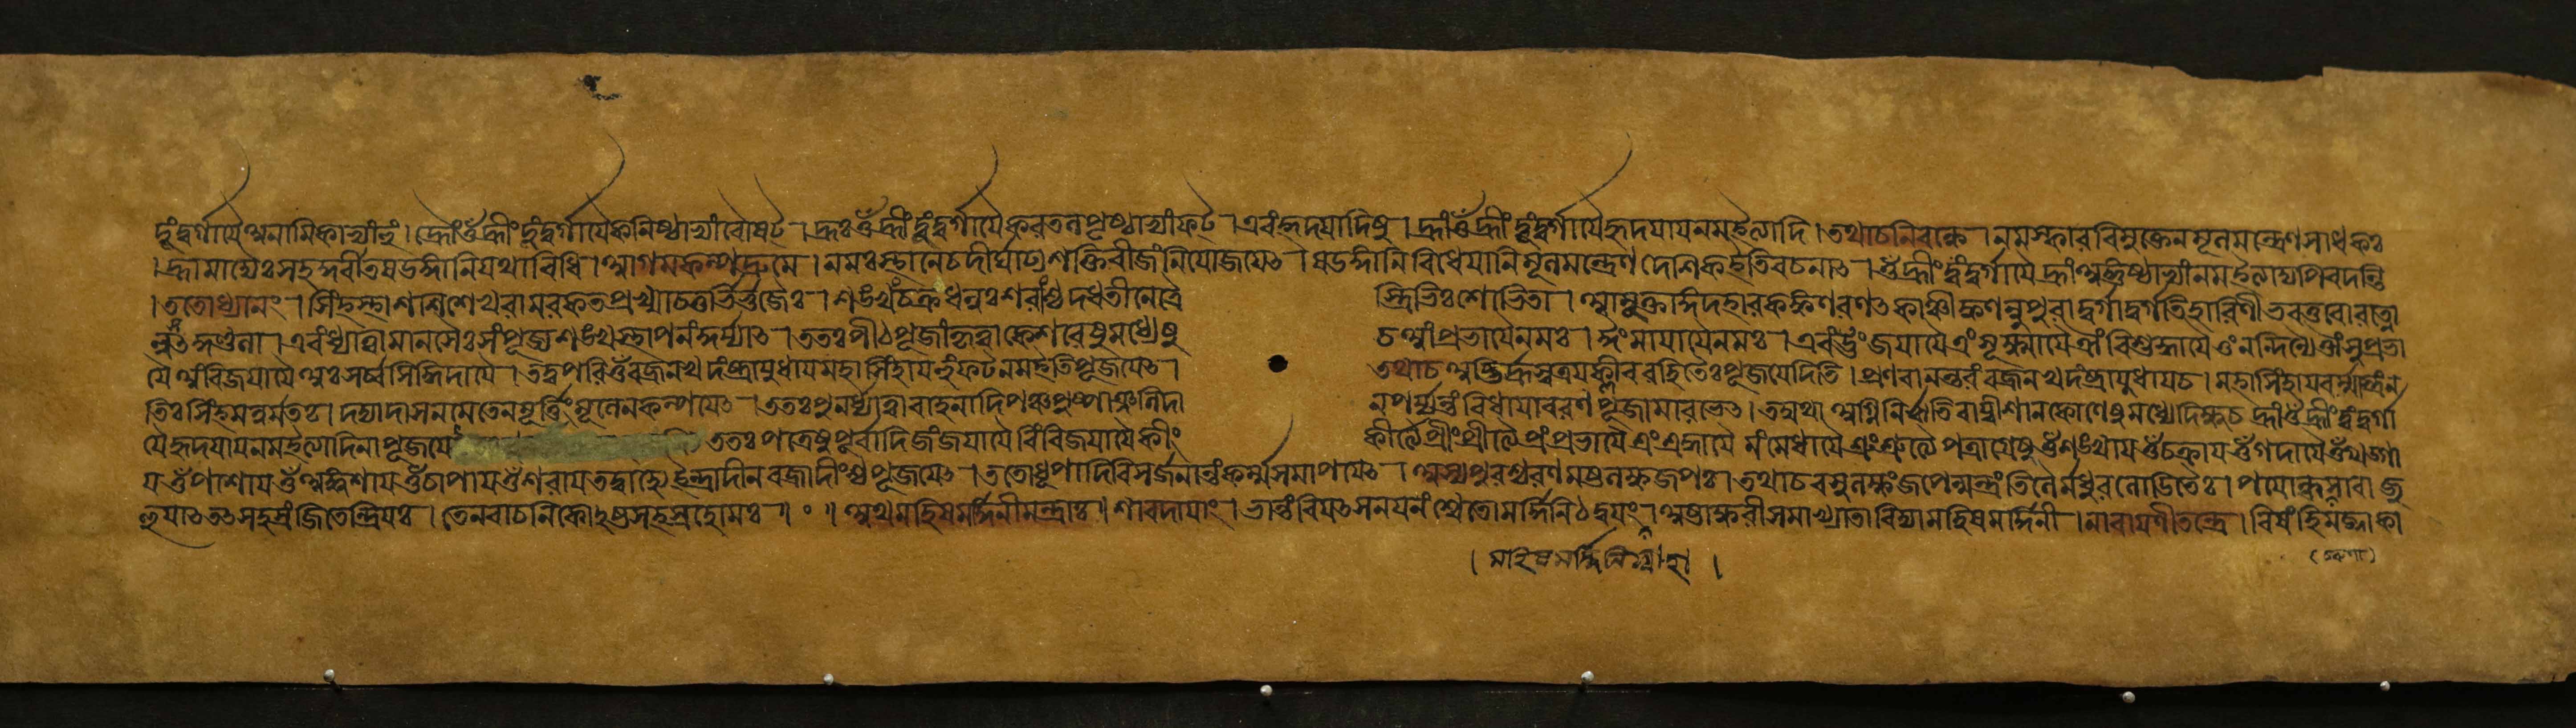 দুংদুর্গায়ৈঅনামিকাভ্যাংহুং । হ্রৌংওঁহ্রীংদুংদুর্গায়ৈকনিষ্ঠাভ্যাংবৌষট্ । হ্রঃওঁহ্রীংদুংদুর্গায়ৈকরতলপৃষ্ঠাভ্যাংফট্ । এবংহৃদয়াদিষু । হ্রাংওঁহ্রীংদুংদুর্গায়ৈহৃদয়ায়নমইত্যাদি । তথাচনিবন্ধে । নমস্কারবিমুক্তেনমূলমন্ত্রেণসাধকঃ
। হ্রামাদ্যৈঃসহ ষডঙ্গানিযথাবিধি । আগমকল্পদ্রুমে । নমঃস্থানেচদীর্ঘাঢ্যশক্তিবীজংনিযোজয়েৎ । ষডঙ্গানিবিধেয়ানিমূলমন্ত্রেণদেশিকইতিবচনাৎ । ওঁহ্রীংদুংদুর্গায়ৈহ্রাংঅঙ্গুষ্ঠাভ্যাংনমইত্যাদ্যপিবদন্তি
। ততোধ্যানং । সিংহস্থাশশিশেখরামরকতপ্রখ্যাচতুর্ভির্ভুজৈঃ । শঙ্খংচক্রধনুঃশরাংশ্চদধতীনেত্রৈ স্ত্রিভিঃশোভিতা । আমুক্তাঙ্গদহারকঙ্কণরণৎকাঞ্চীক্বণন্নূপুরাদুর্গাদুর্গতিহারিণীভবতুবোরত্নো
ল্লসৎকুণ্ডলা । এবংধ্যাত্বামানসৈঃসংপূজ্যশঙ্খস্থাপনংকুর্য্যাৎ । ততঃপীঠপূজাংকৃত্বাকেশরেষুমধ্যেষু চআংপ্রভায়ৈনমঃ । ঈংমায়ায়ৈনমঃ । এবংঊংজয়ায়ৈএংসূক্ষ্মায়ৈঐংবিশুদ্ধায়ৈওংনন্দিন্যৈঔংসুপ্রভা
য়ৈঅংবিজয়ায়ৈঅঃসর্ব্বসিদ্ধিদায়ৈ । তদুপরিওঁবজ্রনখদংষ্ট্রায়ুধায়মহাসিংহায়হুংফট্নমইতিপূজয়েৎ । তথাচ হ্রস্বত্রয়ক্লীবরহিতৈঃপূজয়েদিতি । প্রণবানন্তরংবজ্রনখদংষ্ট্রায়ুধায়চ । মহাসিংহায়বর্ম্মাস্ত্রংন
তিঃসিংহমনুর্মতঃ । দদ্যাদাসনমেতেনমূর্ত্তিংমূলেনকল্পয়েৎ । ততঃপুনর্ধ্যাত্বাবাহনাদিপঞ্চপুষ্পাঞ্জলিদা নপর্য্যন্তংবিধায়াবরণপূজামারভেৎ । তদ্যথাঅগ্নিনির্ঋতিবায়ীশানকোণেষুমধ্যেদিক্ষুচহ্রাংওঁহ্রীংদুংদুর্গা
য়ৈহৃদয়ায়নমইত্যাদিনাপূজয়ে ততঃপত্রেষুপূর্বাদিজংজয়ায়ৈবিংবিজয়ায়ৈকীং কীর্ত্যৈপ্রীংপ্রীত্যৈপ্রংপ্রভায়ৈ মংমেধায়ৈশ্রুংশ্রুত্যৈপত্রাগ্রেষুওঁশঙ্খায়ওঁচক্রায়ওঁগদায়ৈওঁখড়্গা
য়ওঁপাশায়ওঁঅঙ্কুশায়ওঁচাপায়ওঁশরায়তদ্বাহ্যেইন্দ্রাদীনবজ্রাদীংশ্চপূজয়েৎ । ততোধূপাদিবিসর্জনান্তংকর্ম্মসমাপয়েৎ । অস্যপুরশ্চরণমষ্টলক্ষজপঃ । তথাচবসুলক্ষংজপেন্মন্ত্রংতিলৈর্মধুরলোডিতৈঃ । পয়োন্ধসাবাজু
হুয়াৎতৎসহস্রংজিতেন্দ্রিয়ঃ । তেনবাচনিকোঽষ্টসহস্রহোমঃ ॥ ० ॥ অথমহিষমর্দ্দিনীমন্ত্রাঃ । শারদায়াং । ভান্তংবিয়ৎসনয়নংশ্বেতোমর্দ্দিনিঠদ্বয়ং । অষ্টাক্ষরীসমাখ্যাতাবিদ্যামহিষমর্দ্দিনী । নারায়ণীতন্ত্রে । বিষংহি
। মহিষমর্দ্দিনিস্বাহা ।